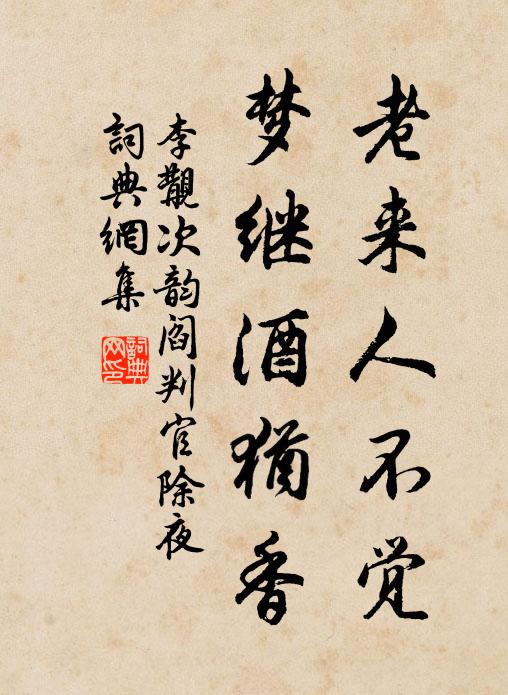 老来人不觉
梦继酒猶香
李覯次韵閻判官除夜
詞典網集
詞典网印